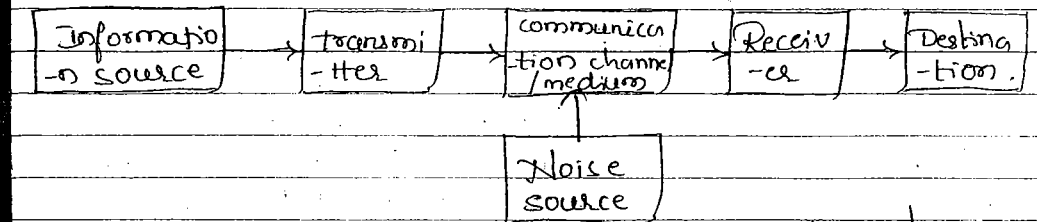 Informatio
-n source
transmi
-tter
communica
-tion channel
/medium
Receiv
-er
Destina
-tion.
Noise
source